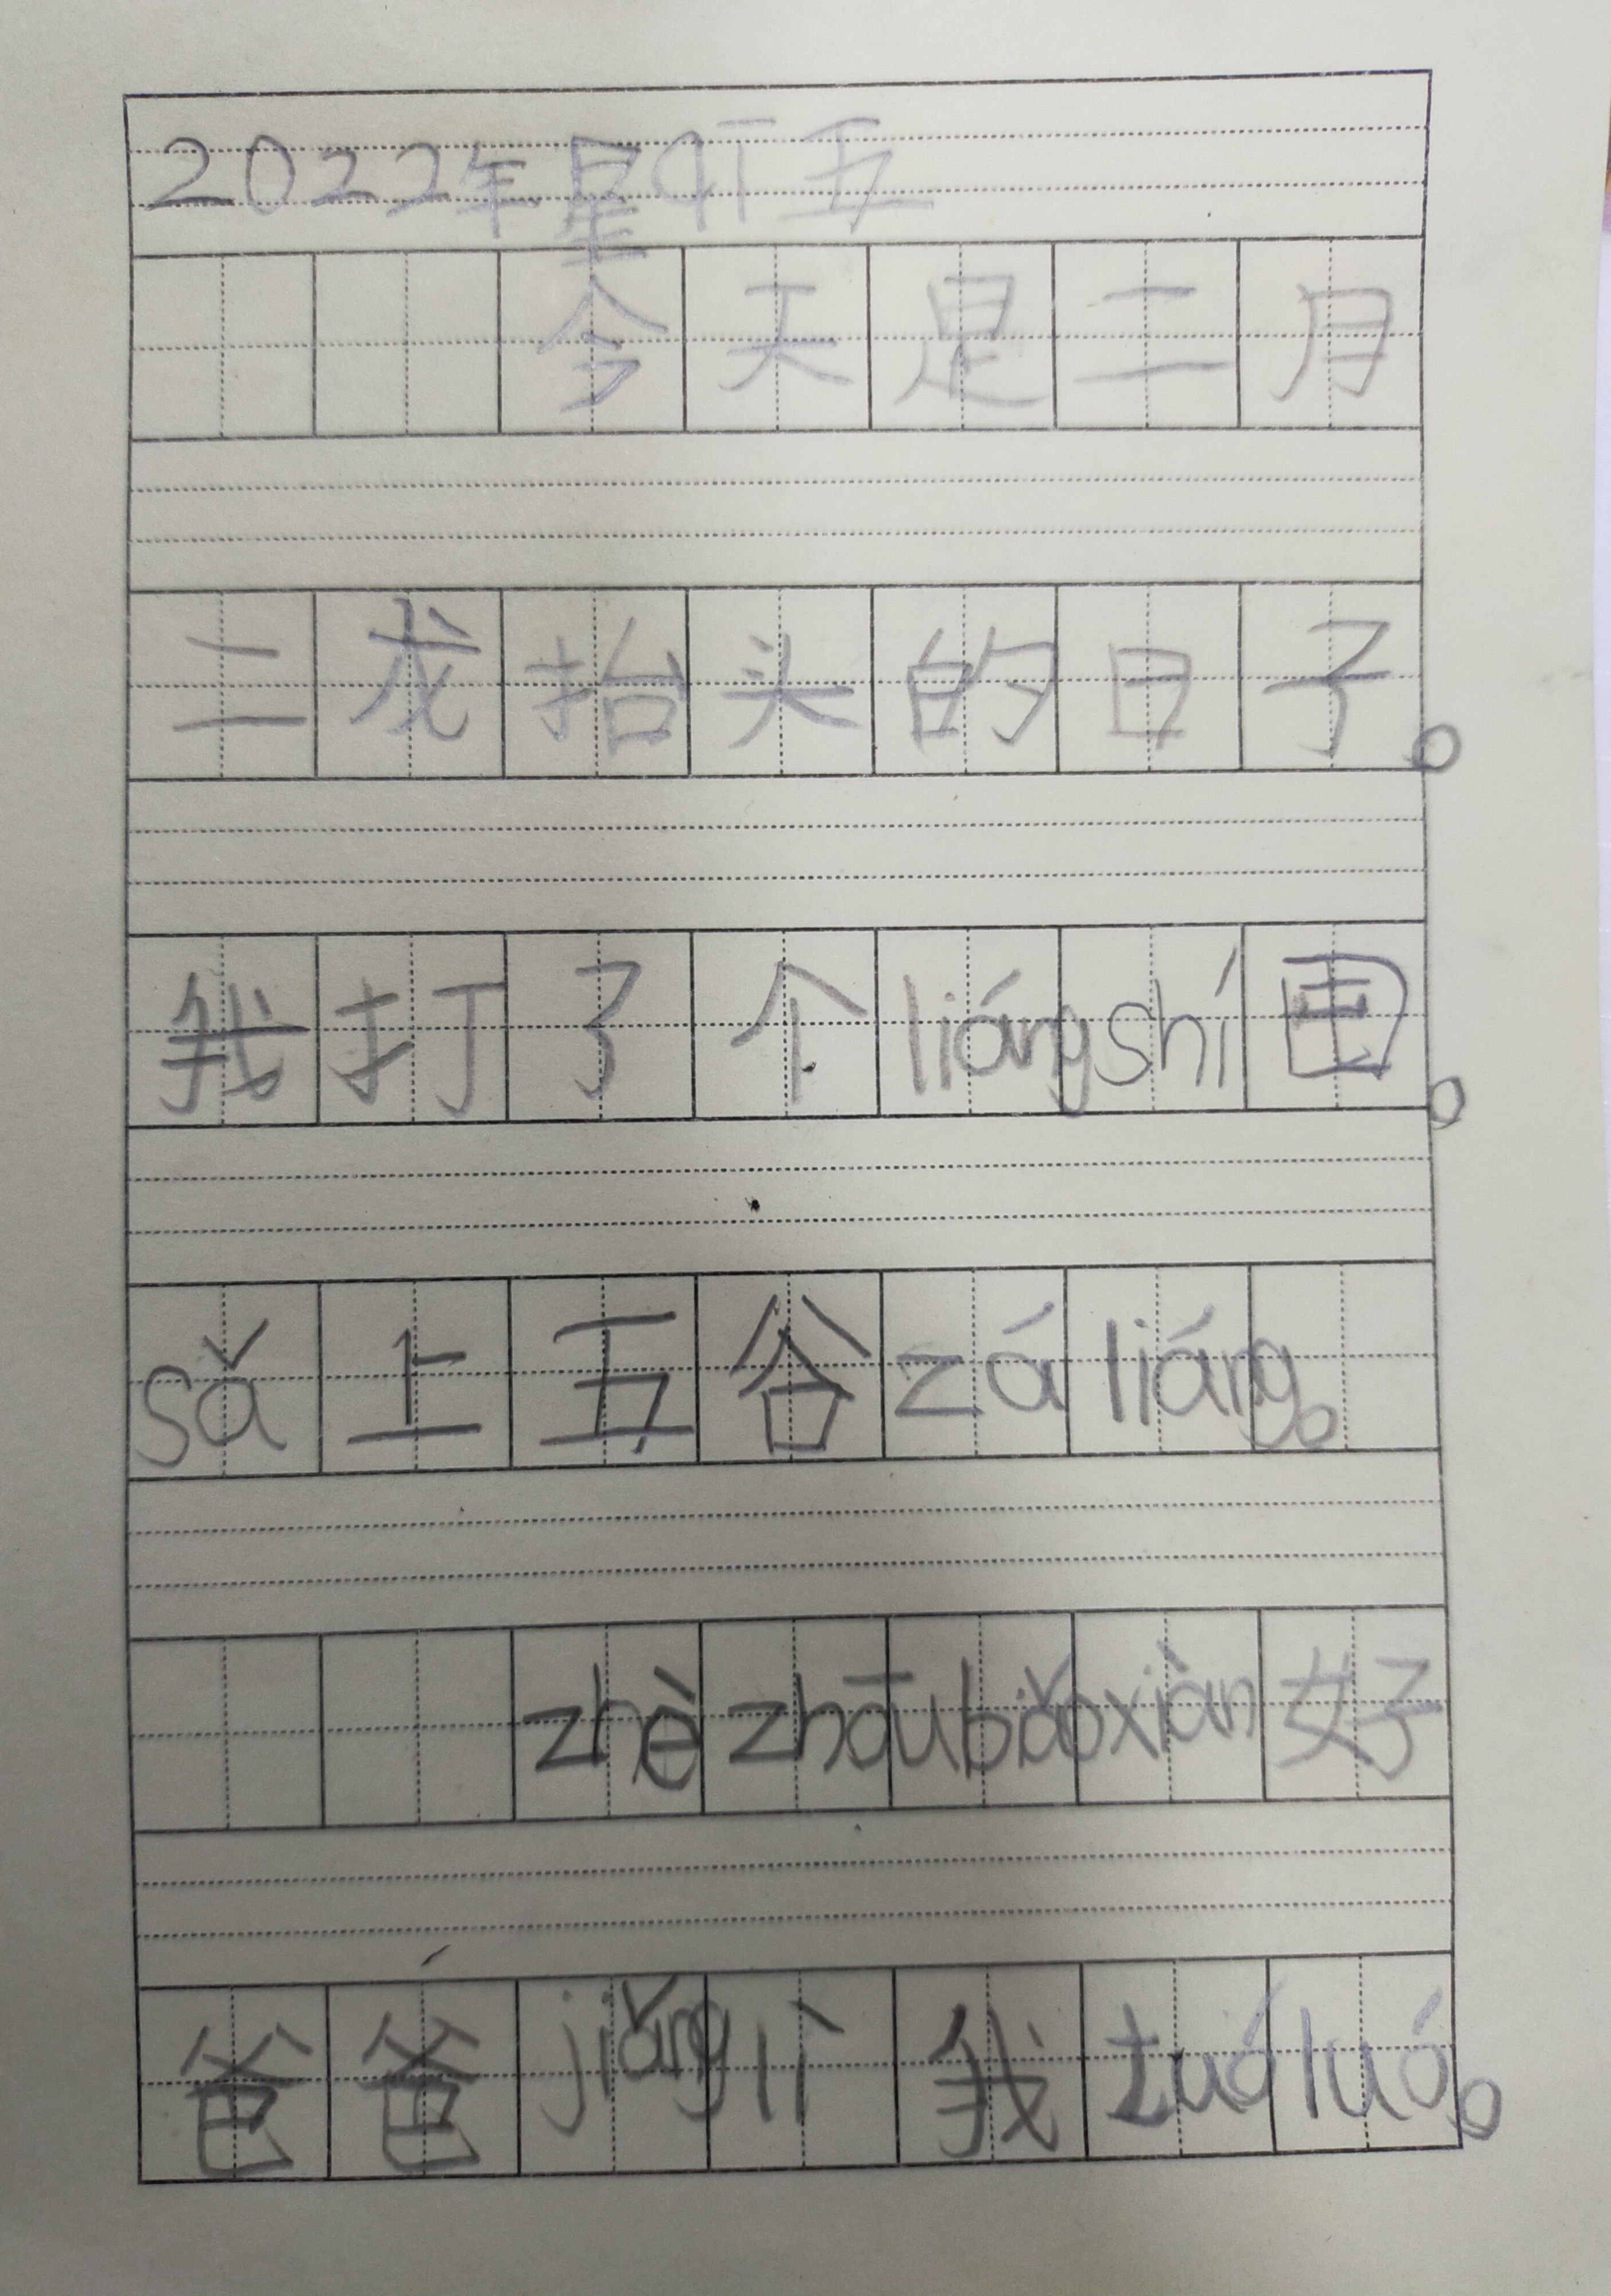 2022年星qī五
今天是二月
二龙抬头的日子。
我打了个liángshí囤。
sǎ上五谷záliáng。
zhèzhōubiǎoxiàn好
爸爸jiǎnglì我tuóluó。